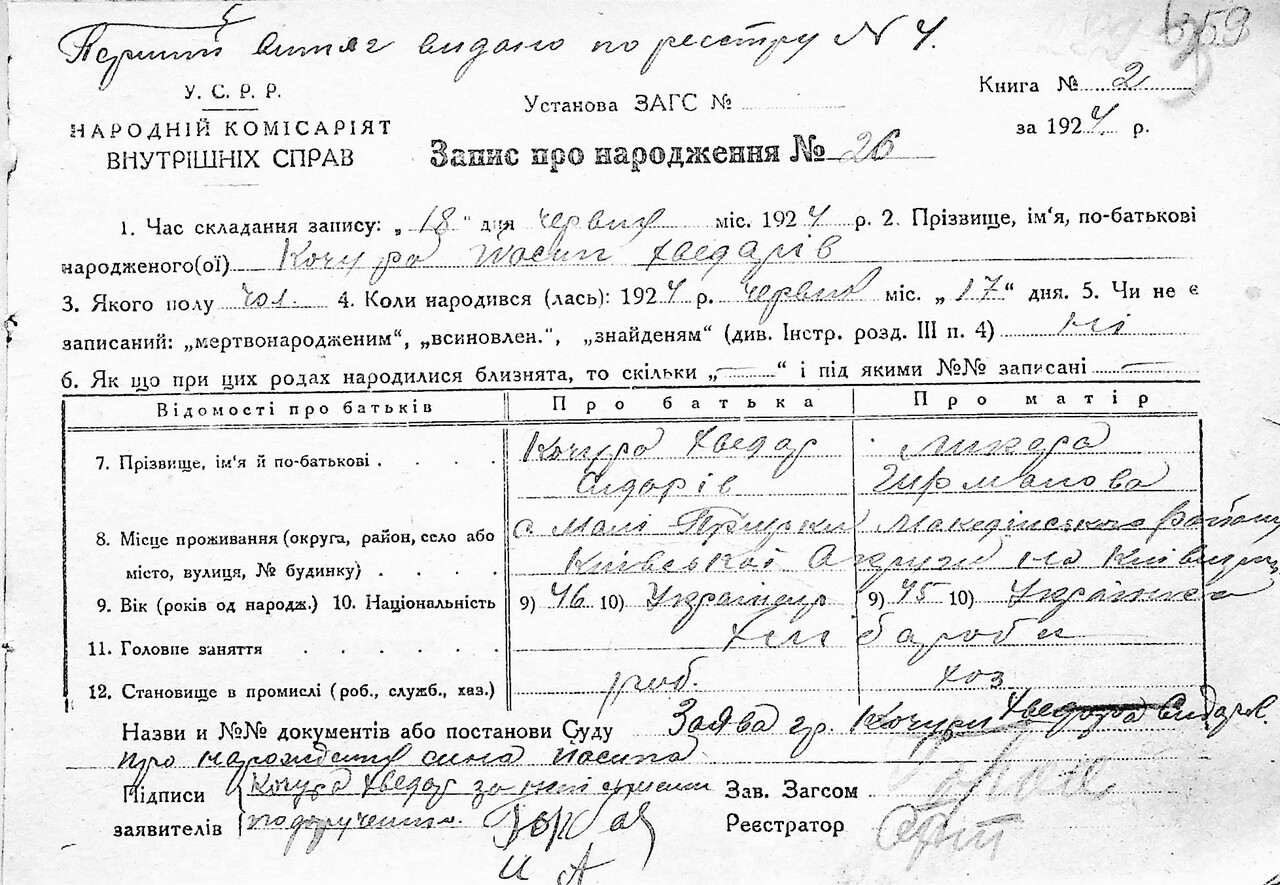 Перший витяг видано по реєстру N 4.
359
У. С. Р. Р.
НАРОДНІЙ КОМІСАРІЯТ
ВНУТРІШНІХ СПРАВ
Установа ЗАГС №
Книга № 2
за 1924 р.
Запис про народження № 26
1. Час складання запису: „18" дня червня міс. 1924 р. 2. Прізвище, ім'я, по-батькові
народженого(ої) Кочура Йосип Хведарів
3. Якого полу чол. 4. Коли народився (лась): 1924 р. червня міс. „17“ дня. 5. Чи не є
записаний: „мертвонародженим“, „всиновлен.", „знайденям“ (див. Інстр. розд. III п. 4) ні
6. Як що при цих родах народилися близнята, то скільки „—“ і під якими №№ записані —
Відомості про батьків Про батька Про матір
7. Прізвище, ім'я й по-батькові . . . . Кочура Хведар
Сидарів
8. Місце проживання (округа, район, село або
місто, вулиця, № будинку) . . . .
с Малі Прицьки району
Київської Округи на Київщині
9. Вік (років од народж.) 10. Національність 9) 46 10) Українець 9) 45 10) Українка
11. Головне заняття . . . . . . Хлібароби
12. Становище в промислі (роб., служб., хаз.) роб. хоз
Назви и №№ документів або постанови Суду Заява гр. Кочури Хведора Сидаров.
про народження сина Йосипа
Підписи
заявителів
Кочура Хведар за
подорученню.
Зав. Загсом
Реєстратор